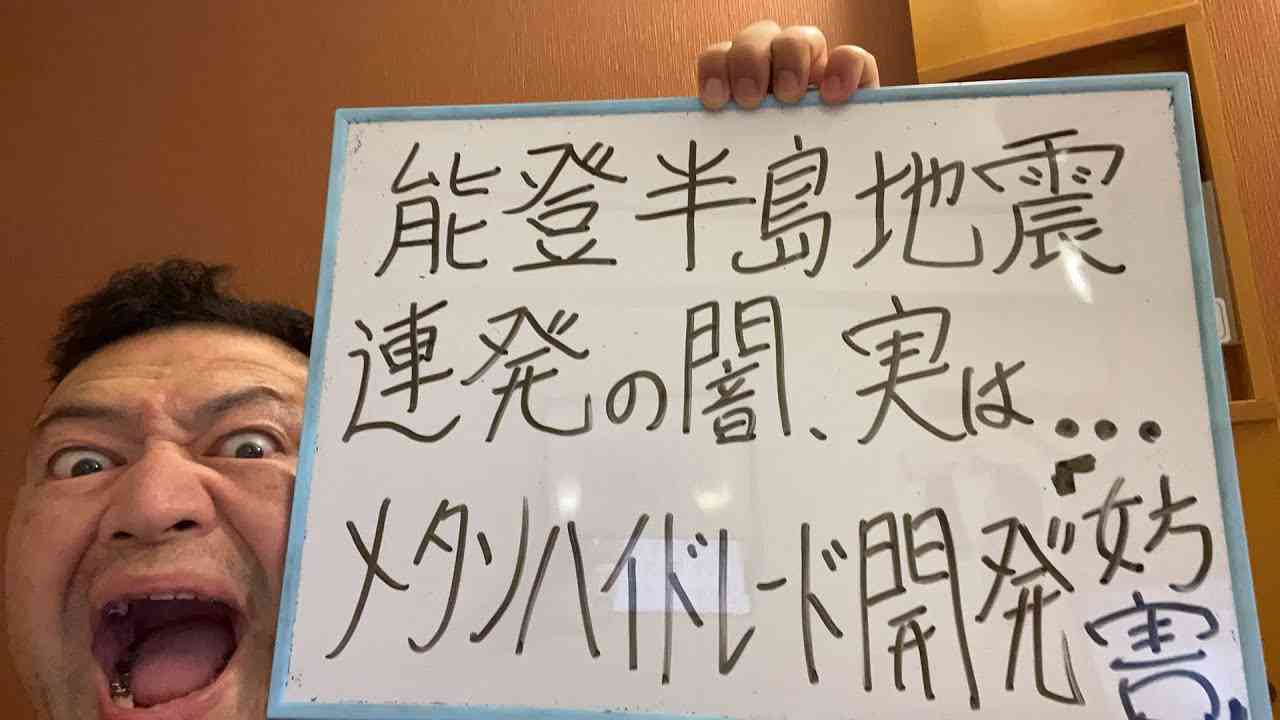 能登半島地震
連発の闇、実は…
メタンハイドレード開発妨害